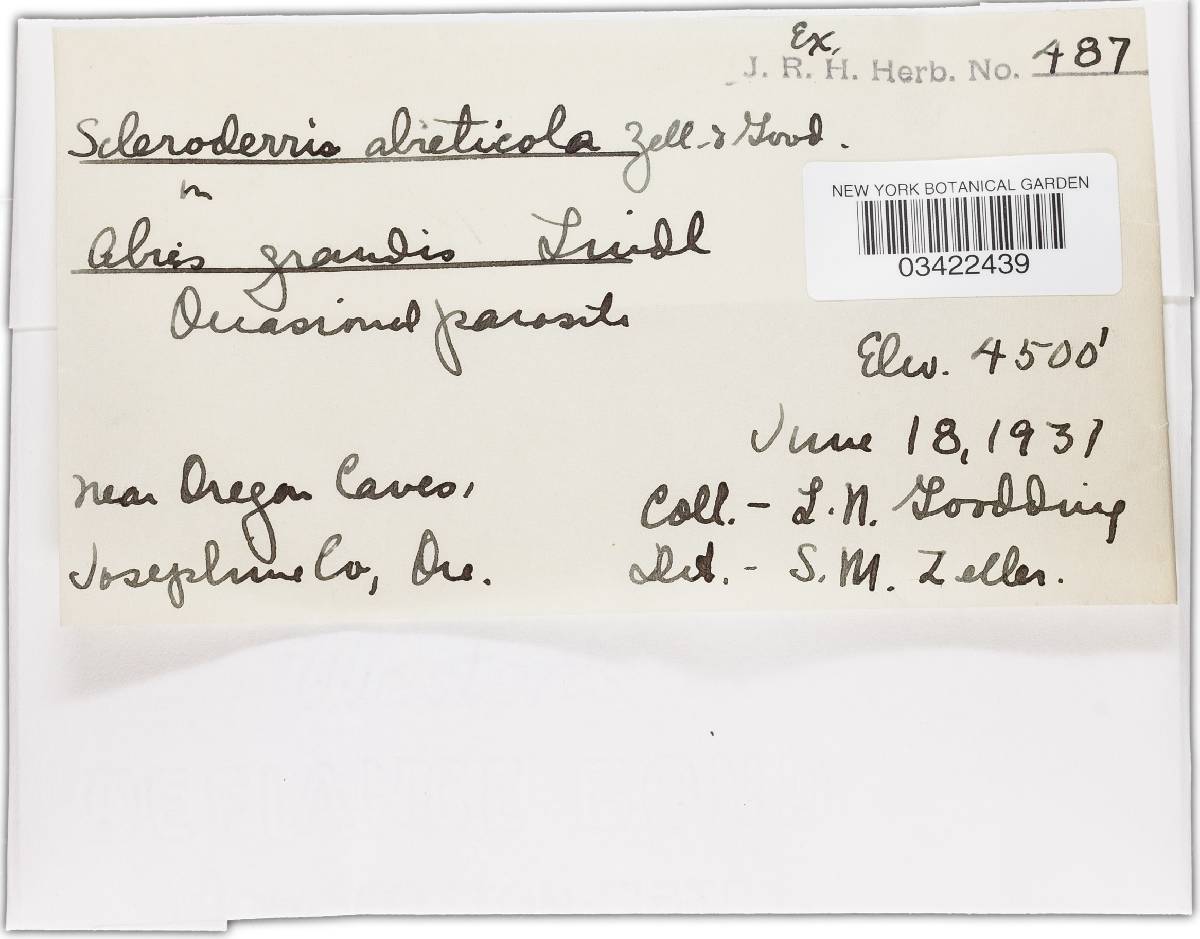 Ex.
J. R. H. Herb. No. 487
Scleroderris abieticola Zell. & Good.
on
Abies grandis Lindl
Occasional parasite
NEW YORK BOTANICAL GARDEN
03422439
Elev. 4500'
June 18, 1931
near Oregon Caves,
Josephine Co, Ore.
Coll. - L. N. Goodding
Det. - S. M. Zeller.